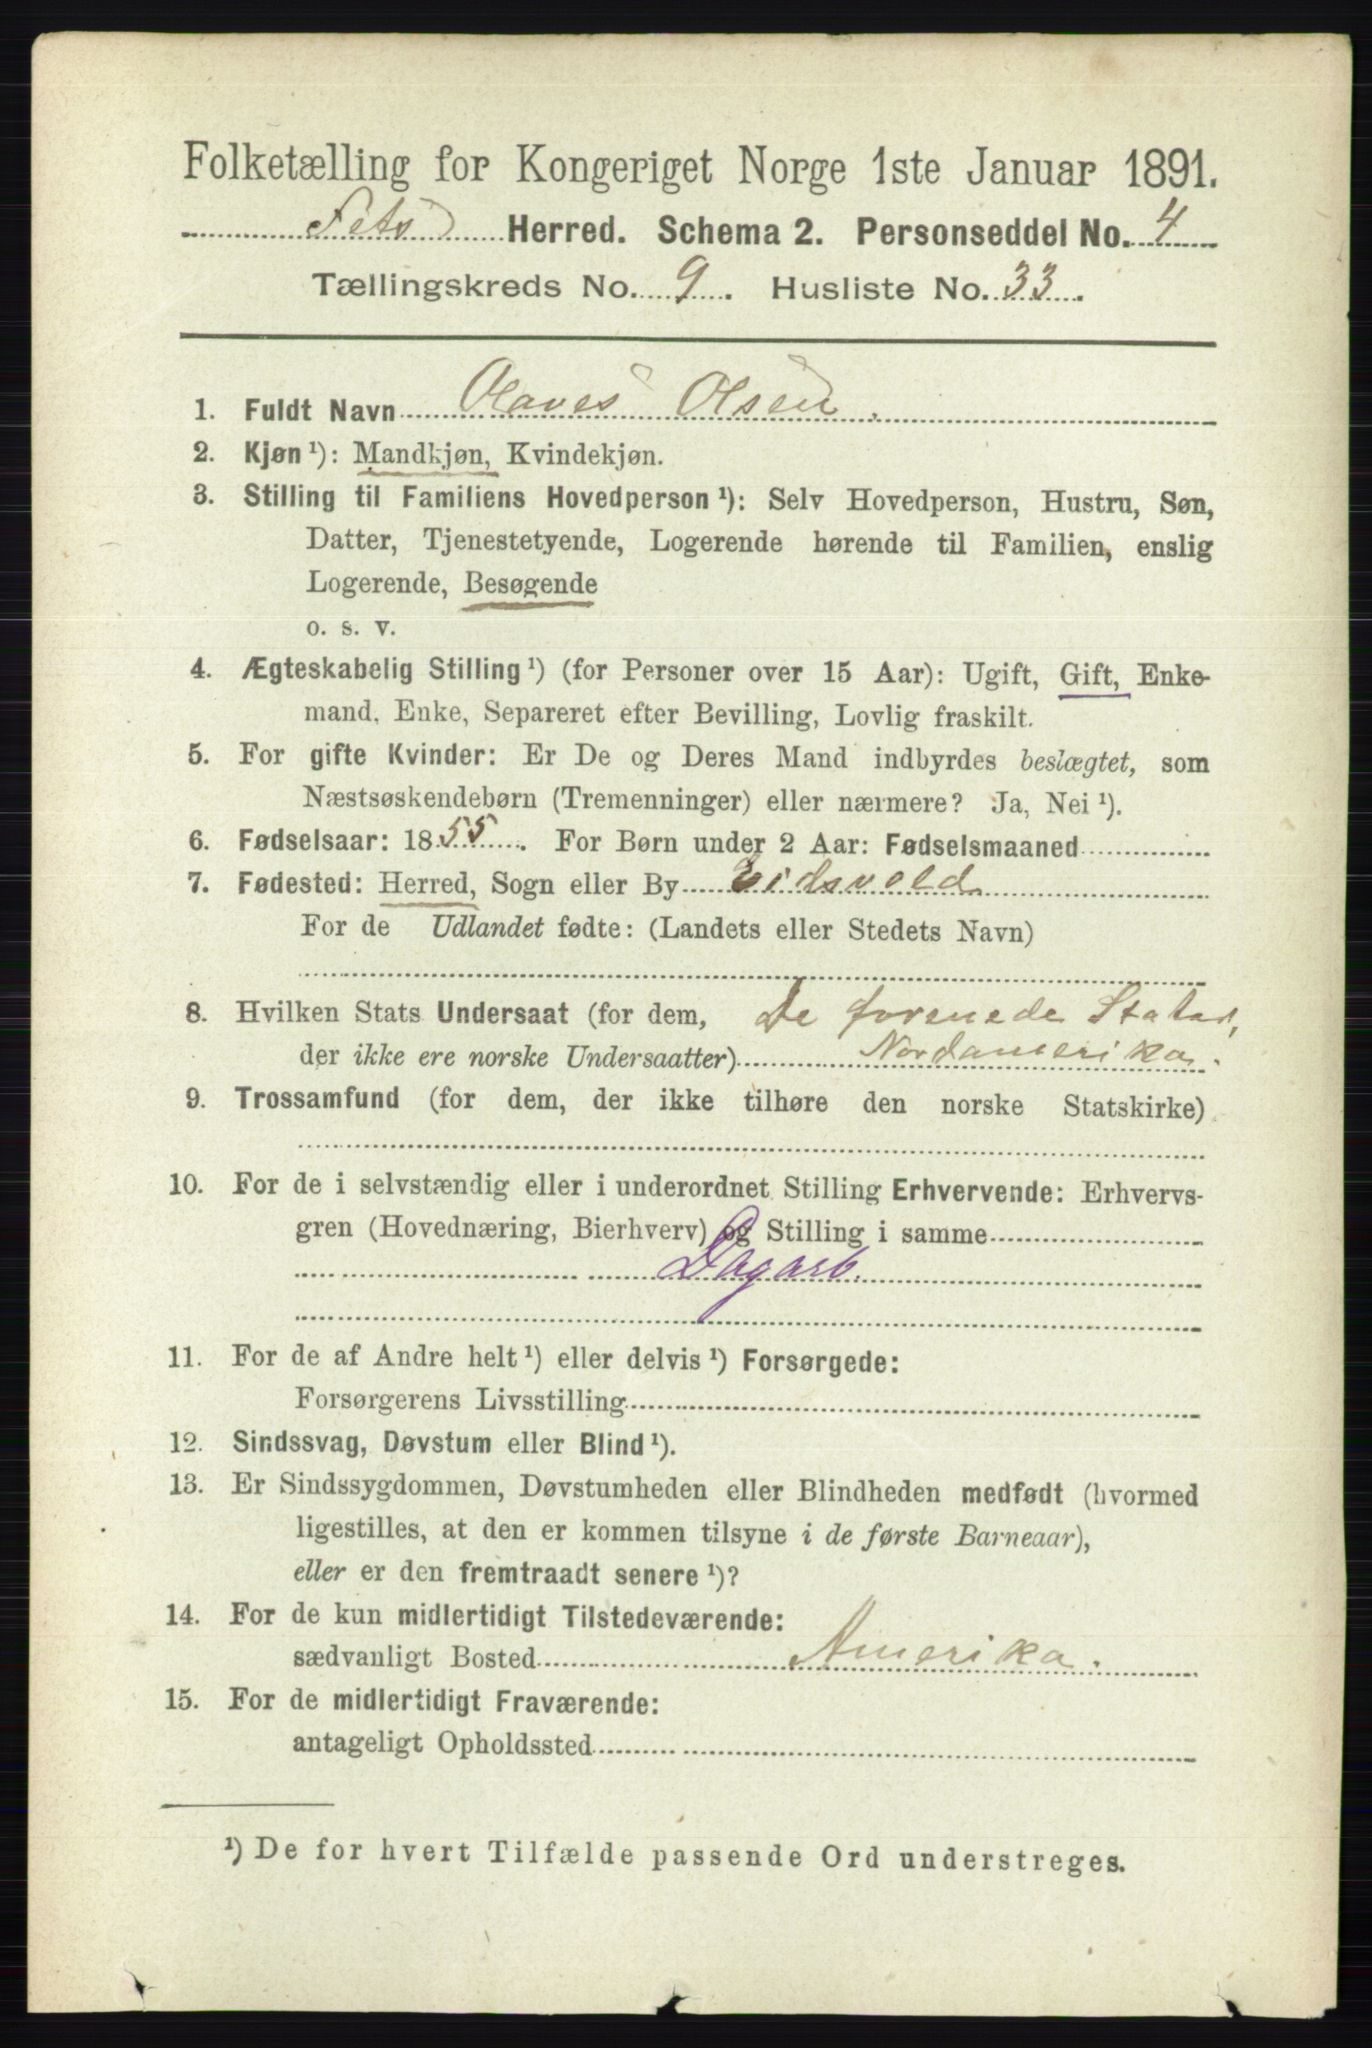 Folketælling for Kongeriget Norge 1ste Januar 1891.
Fets Herred. Schema 2. Personseddel No. 4
Tællingskreds No. 9. Husliste No. 33.
1. Fuldt Navn Olaves Olsen.
2. Kjøn ¹): Mandkjøn, Kvindekjøn.
3. Stilling til Familiens Hovedperson ¹): Selv Hovedperson, Hustru, Søn,
Datter, Tjenestetyende, Logerende hørende til Familien, enslig
Logerende, Besøgende
o. s. v.
4. Ægteskabelig Stilling ¹) (for Personer over 15 Aar): Ugift, Gift, Enke-
mand, Enke, Separeret efter Bevilling, Lovlig fraskilt.
5. For gifte Kvinder: Er De og Deres Mand indbyrdes beslægtet, som
Næstsøskendebørn (Tremenninger) eller nærmere? Ja, Nei ¹).
6. Fødselsaar: 1855. For Børn under 2 Aar: Fødselsmaaned
7. Fødested: Herred, Sogn eller By Eidsvold
For de Udlandet fødte: (Landets eller Stedets Navn)
8. Hvilken Stats Undersaat (for dem, De forenede Stater,
der ikke ere norske Undersaatter) Nordamerika.
9. Trossamfund (for dem, der ikke tilhøre den norske Statskirke)
10. For de i selvstændig eller i underordnet Stilling Erhvervende: Erhvervs-
gren (Hovednæring, Bierhverv) og Stilling i samme
Dagarb.
11. For de af Andre helt ¹) eller delvis ¹) Forsørgede:
Forsørgerens Livsstilling
12. Sindssvag, Døvstum eller Blind ¹).
13. Er Sindssygdommen, Døvstumheden eller Blindheden medfødt (hvormed
ligestilles, at den er kommen tilsyne i de første Barneaar),
eller er den fremtraadt senere ¹)?
14. For de kun midlertidigt Tilstedeværende:
sædvanligt Bosted Amerika.
15. For de midlertidigt Fraværende:
antageligt Opholdssted
¹) De for hvert Tilfælde passende Ord understreges.